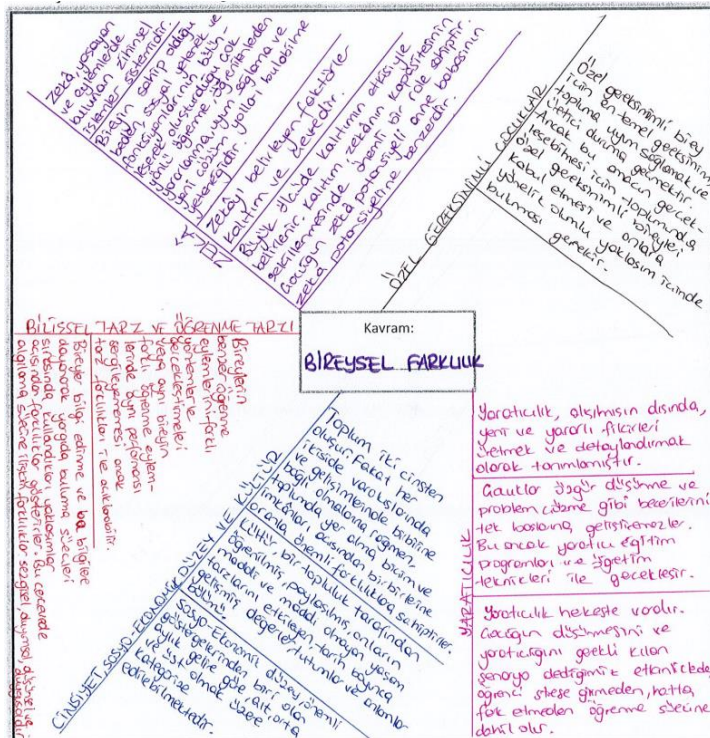 Kavram:
BİREYSEL FARKLILIK
ZEKA
Zeka, yaşayan
ve eylemlerde
bulunan zihinsel
işlemler sistemidir.
Bireyin sahip olduğu
beden, sosyal yetenek ve
fonksiyonlarının bütün-
leşerek oluşturduğu çok
yönlü öğrenme, öğrenilenden
yararlanma, uyum sağlama ve
yeni çözüm yolları bulabilme
yeteneğidir.
Zekayı belirleyen faktörler
kalıtım ve çevredir.
Büyük ölçüde kalıtımın etkisiyle
belirlenir. Kalıtım, zekanın kapasitesinin
şekillenmesinde önemli bir role sahiptir.
Çocuğun zeka potansiyeli anne babasının
zeka potansiyeline benzerdir.
ÖZEL GEREKSİNİMLİ ÇOCUKLAR
Özel gereksinimli birey
için en temel gereksinim,
topluma uyum sağlamak ve
üretici duruma geçmektir.
Ancak bu amacın gerçek-
leşebilmesi için toplumunda
özel gereksinimli bireyleri
kabul etmesi ve onlara
yönelik olumlu yaklaşım içinde
bulunması gerekir.
BİLİŞSEL TARZ VE ÖĞRENME TARZI
Bireylerin
benzer öğrenme
eylemlerini farklı
yöntemlerle
gerçekleştirmeleri
veya aynı bireyin
farklı öğrenme eylem-
lerinde aynı performansı
sergileyememesi ancak
tarz farklılıkları ile açıklanabilir.
Bireyler bilgi edinme ve bu bilgilere
dayanarak yargıda bulunma süreçleri
sırasında kullandıkları yaklaşımlar
açısından farklılıklar gösterirler. Bu çerçevede
algılama sürecine ilişkin farklılıklar sezgisel, duyusal, düşünsel ve
duygusaldır.
CİNSİYET, SOSYO-EKONOMİK DÜZEY VE KÜLTÜR
Toplum iki cinsten
oluşur. Fakat her
ikiside varoluşlarında
ve gelişimlerinde birbirine
bağlı olmalarına rağmen,
toplumda yer alma biçim ve
imkanları açısından birbirlerine
oranla önemli farklılıklara sahiptirler.
Kültür, bir topluluk tarafından
öğrenilmiş, paylaşılmış, onların
maddi ve maddi olmayan yaşam
tarzlarını etkileyen, tarih boyunca
gelişmiş değerler, tutumlar ve anlamlar
bütünü.
Sosyo-Ekonomik düzey önemli
göstergelerinden biri olan
aylık gelire göre; alt, orta
ve üst olmak üzere
kategorize
edilebilmektedir.
YARATICILIK
Yaratıcılık, alışılmışın dışında,
yeni ve yararlı fikirleri
üretmek ve detaylandırmak
olarak tanımlamıştır.
Çocuklar özgür düşünme ve
problem çözme gibi becerilerini
tek başlarına, geliştiremezler.
Bu ancak yaratıcı eğitim
programları ve öğretim
teknikleri ile gerçekleşir.
Yaratıcılık herkeste vardır.
Çocuğun düşünmesini ve
yaratıcılığını gerekli kılan
senaryo dediğimiz etkinliklerde,
öğrenci strese girmeden, hatta
fark etmeden öğrenme sürecine
dahil olur.